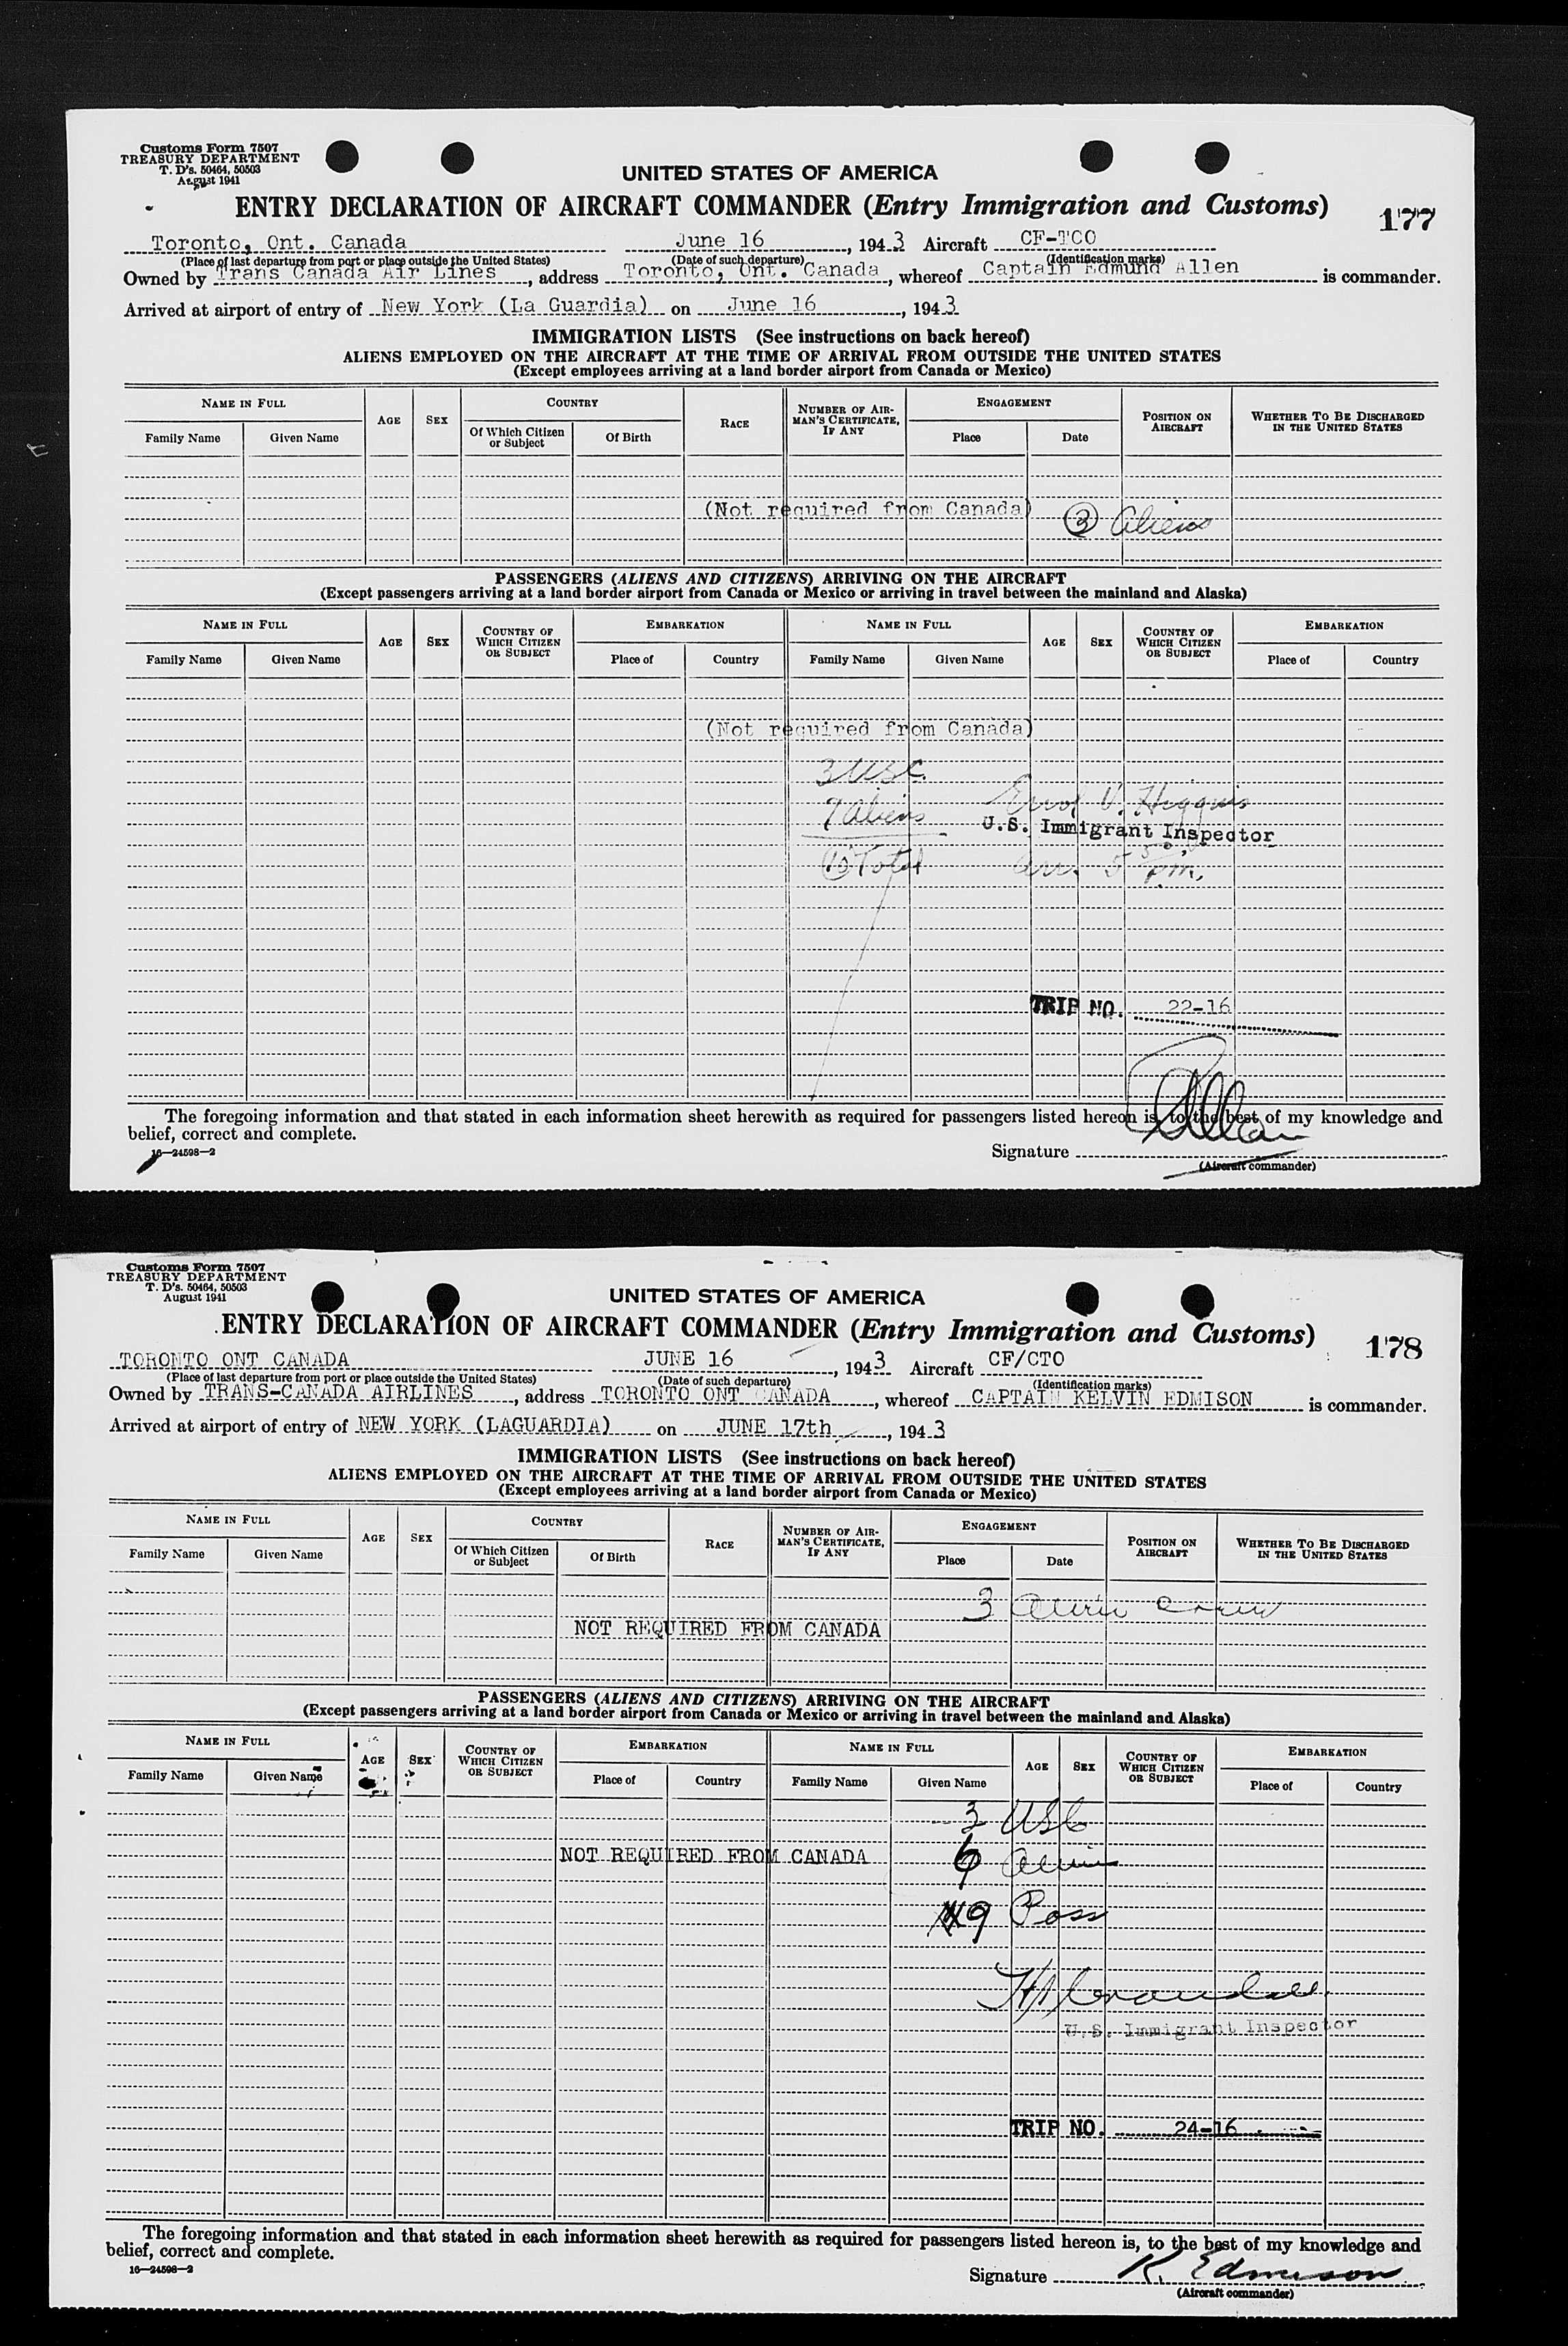 Customs Form 7507
TREASURY DEPARTMENT
T. D's. 50464, 50503
August 1941
UNITED STATES OF AMERICA
ENTRY DECLARATION OF AIRCRAFT COMMANDER (Entry Immigration and Customs)
177
Toronto, Ont. Canada June 16, 1943 Aircraft CF-TCO
(Place of last departure from port or place outside the United States) (Date of such departure) (Identification marks)
Owned by Trans Canada Air Lines, address Toronto, Ont. Canada, whereof Captain Edmund Allen is commander.
Arrived at airport of entry of New York (La Guardia) on June 16, 1943
IMMIGRATION LISTS (See instructions on back hereof)
ALIENS EMPLOYED ON THE AIRCRAFT AT THE TIME OF ARRIVAL FROM OUTSIDE THE UNITED STATES
(Except employees arriving at a land border airport from Canada or Mexico)
NAME IN FULL AGE SEX COUNTRY RACE NUMBER OF AIRMAN'S CERTIFICATE, IF ANY ENGAGEMENT POSITION ON AIRCRAFT WHETHER TO BE DISCHARGED IN THE UNITED STATES
Family Name Given Name Of Which Citizen or Subject Of Birth Place Date
(Not required from Canada) 3 Aliens
PASSENGERS (ALIENS AND CITIZENS) ARRIVING ON THE AIRCRAFT
(Except passengers arriving at a land border airport from Canada or Mexico or arriving in travel between the mainland and Alaska)
NAME IN FULL AGE SEX COUNTRY OF WHICH CITIZEN OR SUBJECT EMBARKATION NAME IN FULL AGE SEX COUNTRY OF WHICH CITIZEN OR SUBJECT EMBARKATION
Family Name Given Name Place of Country Family Name Given Name Place of Country
(Not required from Canada)
3 USC
7 Aliens Errol V. Higgins
U.S. Immigrant Inspector
10 Total arr. 5 50 p.m.
TRIP NO. 22-16
The foregoing information and that stated in each information sheet herewith as required for passengers listed hereon is, to the best of my knowledge and
belief, correct and complete.
16—24598—2
Signature Allan
(Aircraft commander)
Customs Form 7507
TREASURY DEPARTMENT
T. D's. 50464, 50503
August 1941
UNITED STATES OF AMERICA
ENTRY DECLARATION OF AIRCRAFT COMMANDER (Entry Immigration and Customs)
178
TORONTO ONT CANADA JUNE 16, 1943 Aircraft CF/CTO
(Place of last departure from port or place outside the United States) (Date of such departure) (Identification marks)
Owned by TRANS-CANADA AIRLINES, address TORONTO ONT CANADA, whereof CAPTAIN KELVIN EDMISON is commander.
Arrived at airport of entry of NEW YORK (LAGUARDIA) on JUNE 17th, 1943
IMMIGRATION LISTS (See instructions on back hereof)
ALIENS EMPLOYED ON THE AIRCRAFT AT THE TIME OF ARRIVAL FROM OUTSIDE THE UNITED STATES
(Except employees arriving at a land border airport from Canada or Mexico)
NAME IN FULL AGE SEX COUNTRY RACE NUMBER OF AIRMAN'S CERTIFICATE, IF ANY ENGAGEMENT POSITION ON AIRCRAFT WHETHER TO BE DISCHARGED IN THE UNITED STATES
Family Name Given Name Of Which Citizen or Subject Of Birth Place Date
3 Alien Crew
NOT REQUIRED FROM CANADA
PASSENGERS (ALIENS AND CITIZENS) ARRIVING ON THE AIRCRAFT
(Except passengers arriving at a land border airport from Canada or Mexico or arriving in travel between the mainland and Alaska)
NAME IN FULL AGE SEX COUNTRY OF WHICH CITIZEN OR SUBJECT EMBARKATION NAME IN FULL AGE SEX COUNTRY OF WHICH CITIZEN OR SUBJECT EMBARKATION
Family Name Given Name Place of Country Family Name Given Name Place of Country
3 USC
NOT REQUIRED FROM CANADA 6 Alien
9 Pass
Crandall
U.S. Immigrant Inspector
TRIP NO. 24-16
The foregoing information and that stated in each information sheet herewith as required for passengers listed hereon is, to the best of my knowledge and
belief, correct and complete.
16—24598—2
Signature K. Edmison
(Aircraft commander)